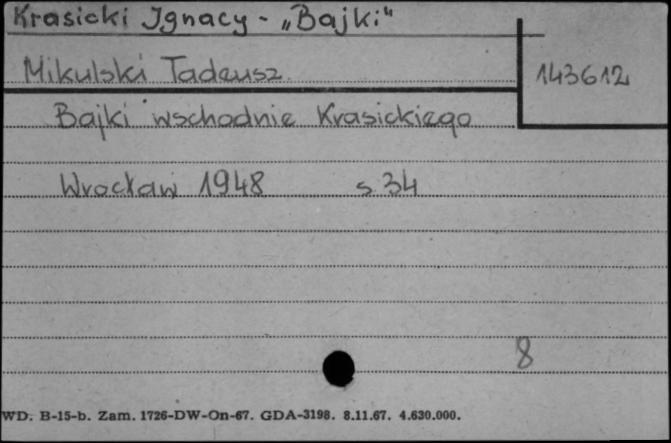 Krasicki Ignacy - „Bajki"
Mikulski Tadeusz
143612
Bajki wschodnie Krasickiego
Wrocław 1948 s 34
8
WD. B-15-b. Zam. 1726-DW-On-67. GDA-3198. 8.11.67. 4.630.000.